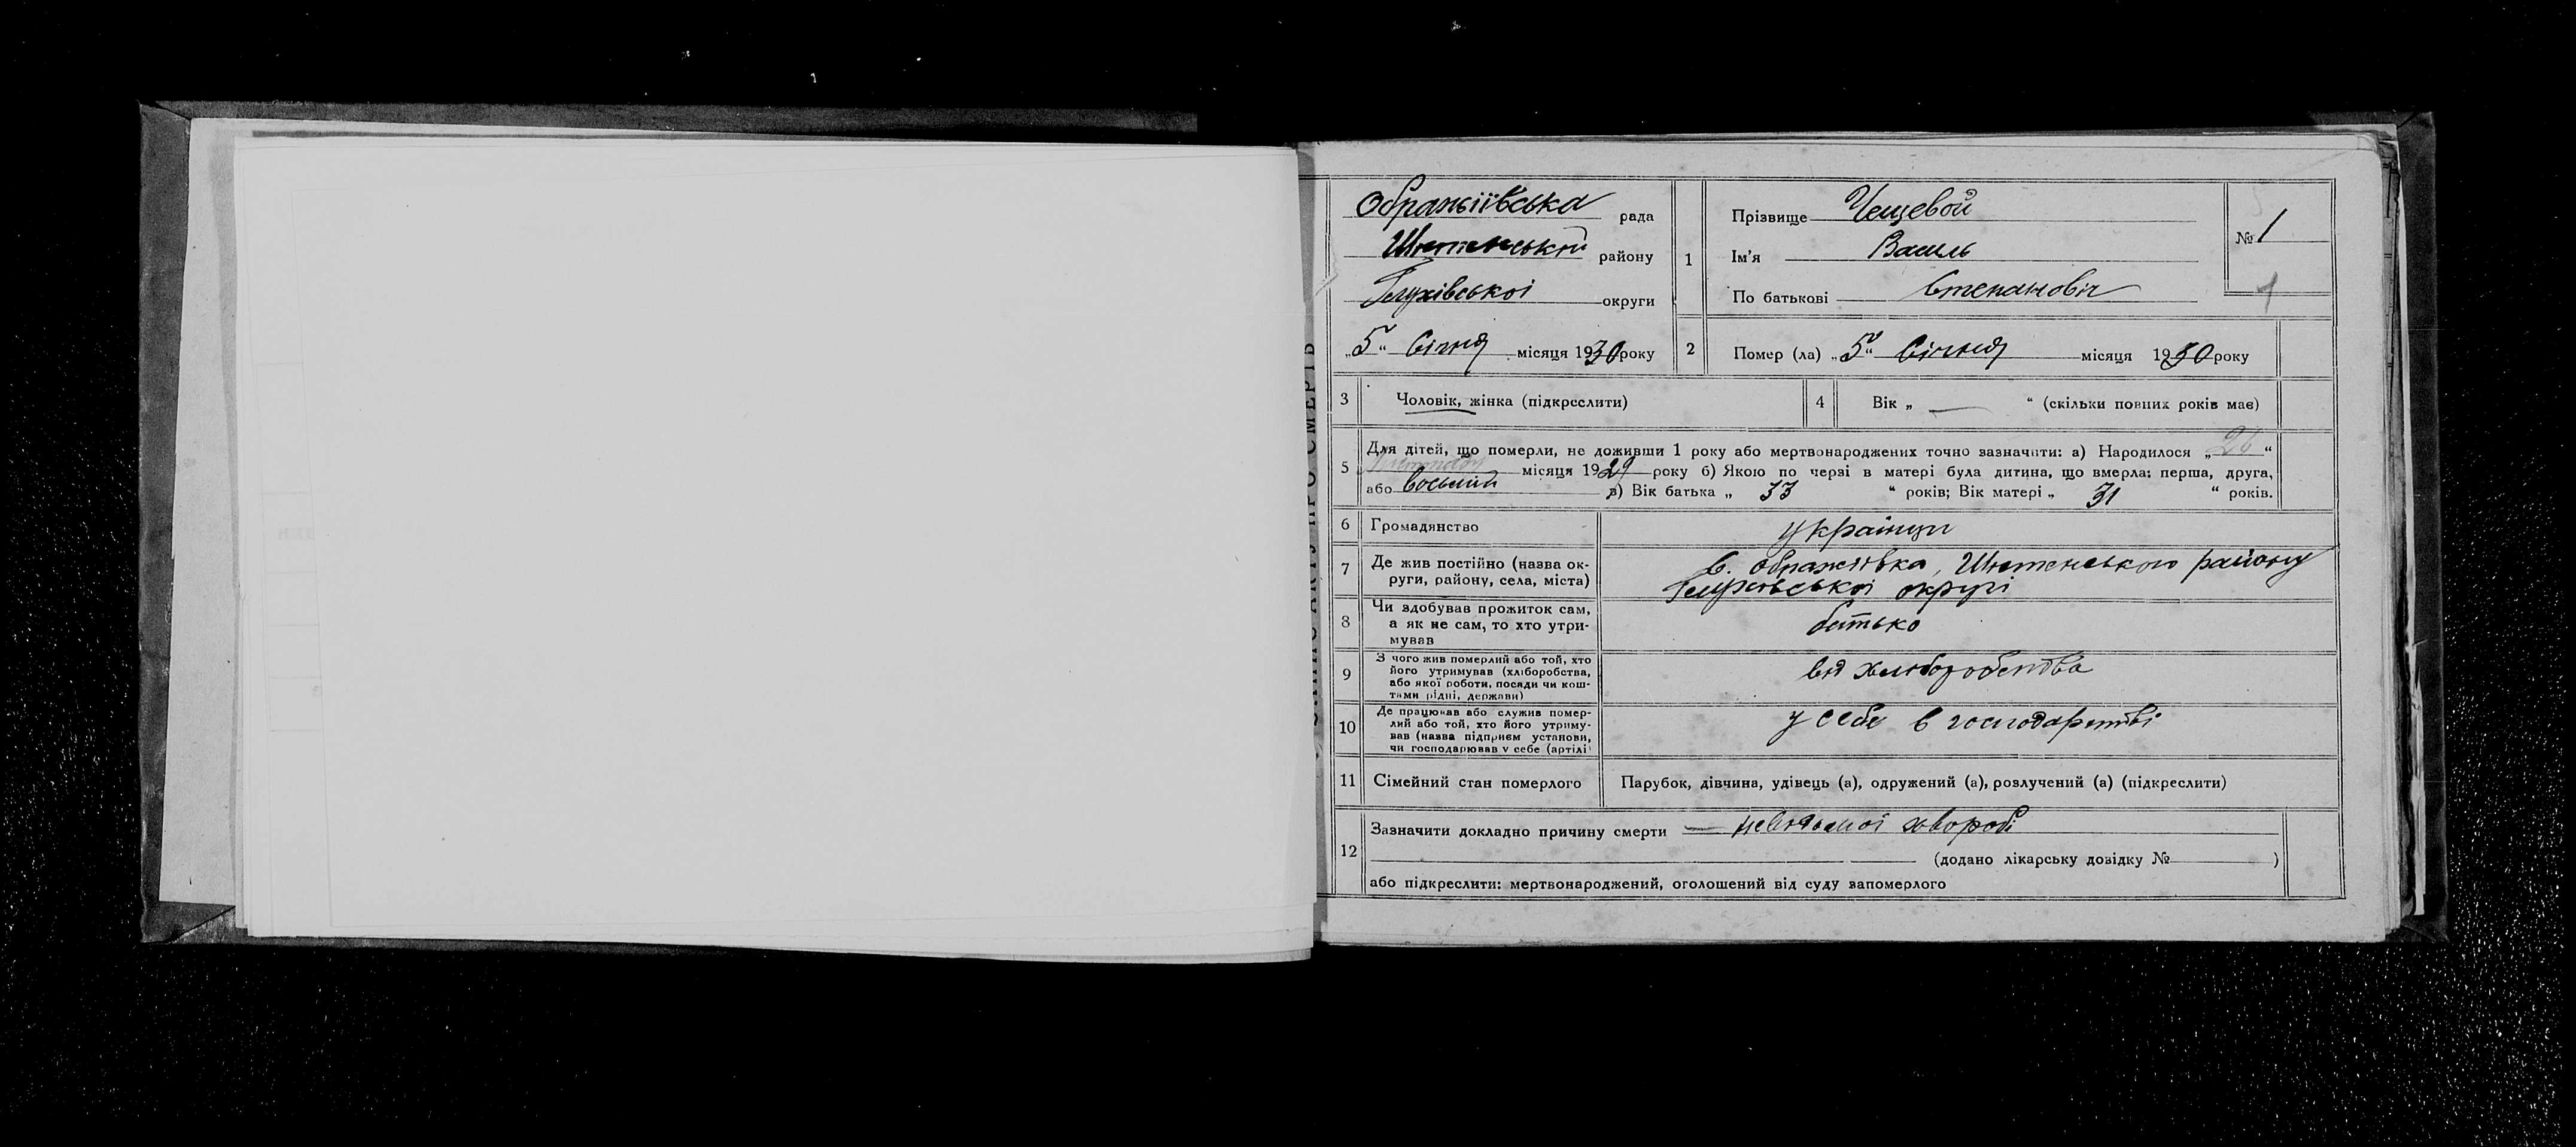 Ображіївська рада
Шостенський району
Глухівської округи
„5“ Січня місяця 1930 року
1
Прізвище Чещевой
Ім'я Василь
По батькові Степанович
№ 1
1
2 Помер (ла) „5“ Січня місяця 1930 року
3 Чоловік, жінка (підкреслити)
4 Вік „ — “ (скільки повних років має)
5 Для дітей, що померли, не доживши 1 року або мертвонароджених точно зазначити: а) Народилося „26“
місяця 1929 року б) Якою по черзі в матері була дитина, що вмерла: перша, друга,
або восьмий в) Вік батька „ 33 “ років; Вік матері „ 31 “ років.
6 Громадянство українци
7 Де жив постійно (назва ок-
руги, району, села, міста)
С. Ображіївка, Шостенського району
Глухівської округі
8 Чи здобував прожиток сам,
а як не сам, то хто утри-
мував
батько
9 З чого жив померлий або той, хто
його утримував (хліборобства,
або якої роботи, посади чи кош-
тами рідні, держави)
від хліборобства
10 Де працював або служив помер-
лий або той, хто його утриму-
вав (назва підприєм установи,
чи господарював у себе (артілі)
у себе в господарстві
11 Сімейний стан померлого Парубок, дівчина, удівець (а), одружений (а), розлучений (а) (підкреслити)
12 Зазначити докладно причину смерти — невідомої хвороби
(додано лікарську довідку № )
або підкреслити: мертвонароджений, оголошений від суду запомерлого